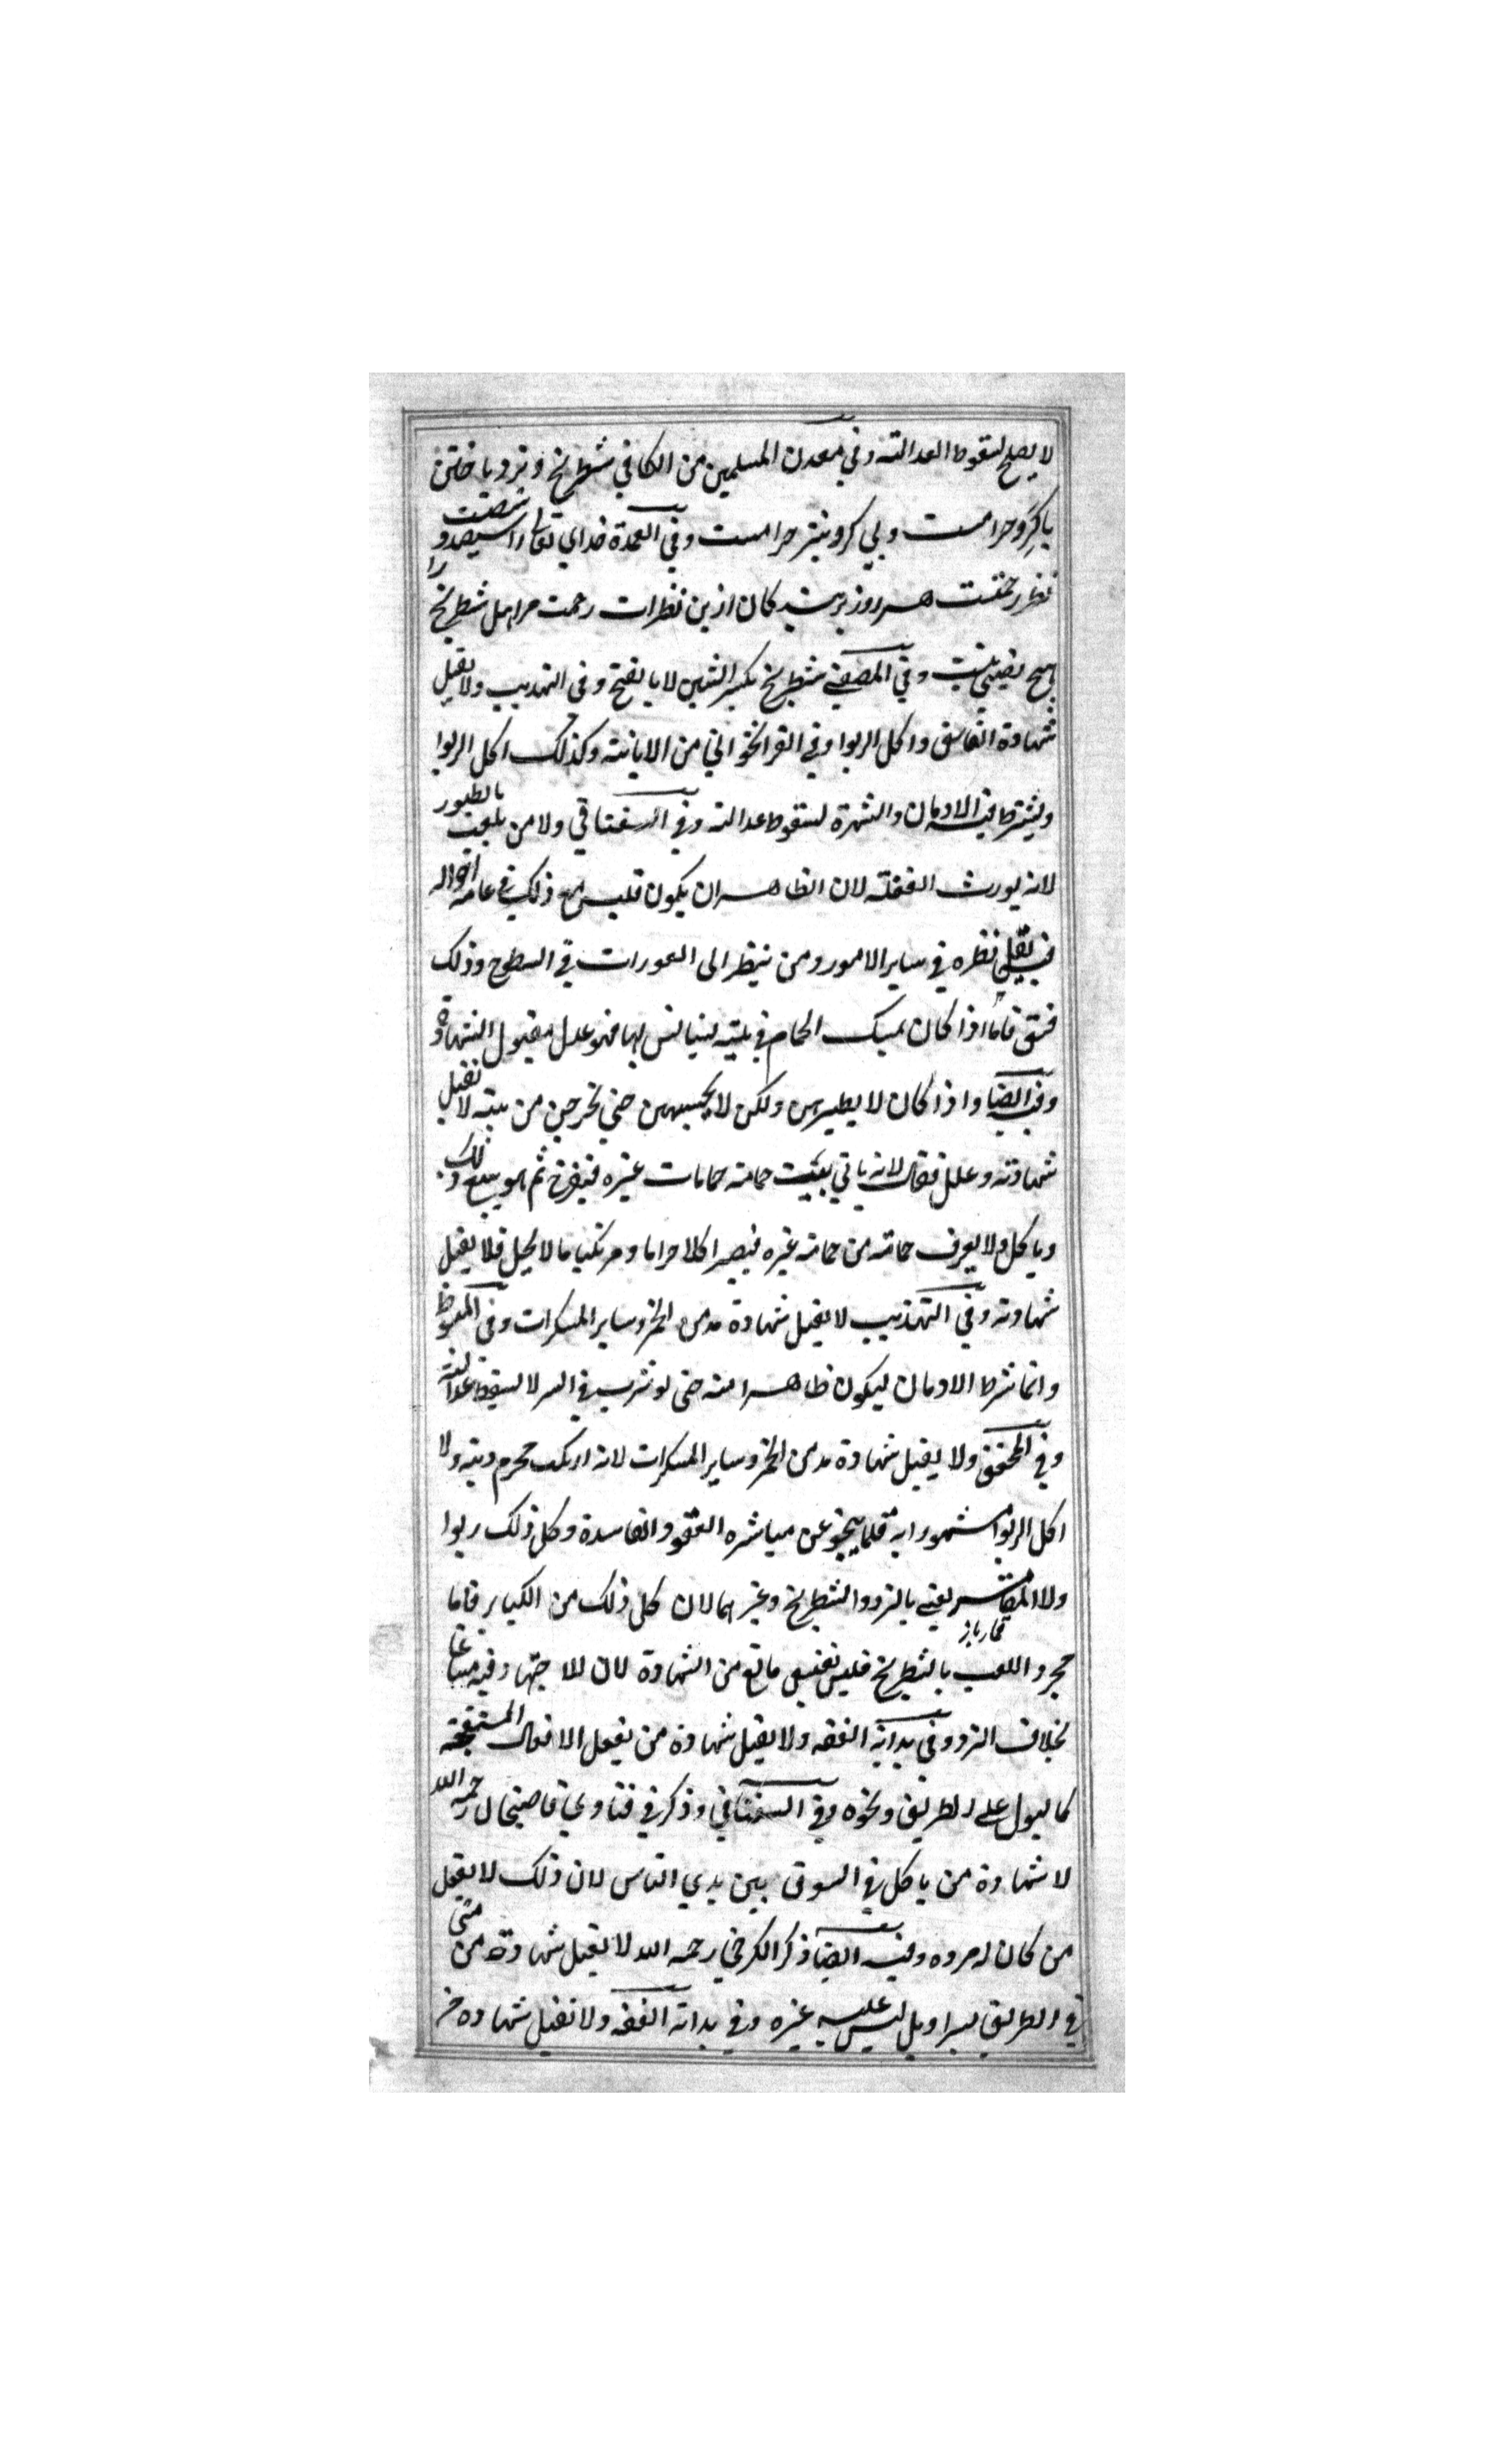 لا يصلح لسقوط العدالة وفي معدن المسلمين من الكافي شطرنج ونرد باختن
با گرو حرامست وبي گرو نيز حرامست وفي العمدة خداي تعالی را سيصد و شصت
نظر رحمتست هر روز كان ازين نظرات رحمت مر اهل شطرنج را
هيچ نصيبي نيست وفي المصفى شطرنج بكسر الشين لا بالفتح وفي التهذيب ولا يقبل
شهادة الفاسق واكل الربوا وفي القراخواني من الابانة وكذلك اكل الربوا
ويشترط فيه الادمان والشهرة لسقوط عدالته وفي السغناقي ولا من يلعب بالطيور
لانه يورث الغفلة لان الظاهر ان يكون قلبه مع ذلك في عامة احواله
فيقل نظره في ساير الامور ومن ينظر الى العورات في السطوح وذلك
فسق فاما اذا كان يمسك الحمام في بيته ليستانس بها فهو عدل مقبول الشهادة
وفيه ايضا واذا كان لا يطيرهن ولكن لا يحبسهن حتى يخرجن من بيته لا تقبل
شهادته وعلل فقال لانه ياتي ببيت حمامه حمامات غيره فيفرخ ثم هو يبيع ذلك
وياكل ولا يعرف حمامه من حمامة غيره فيصير اكلا حراما ومرتكبا ما لا يحل فلا يقبل
شهادته وفي التهذيب لا يقبل شهادة مدمن الخمر وساير المسكرات وفي المبسوط
وانما شرط الادمان ليكون ظاهرا منه حتى لو شرب في السر لا يسقط عدالته
وفي المحقق ولا يقبل شهادة مدمن الخمر وساير المسكرات لانه ارتكب محرم دينه ولا
اكل الربوا مشهورا به قلما ينجو عن مباشره العقود الفاسدة وكل ذلك ربوا
ولا المقامر يعني بالنرد والشطرنج وغيرهما لان كل ذلك من الكباير فاما
قمار باز
مجرد اللعب بالشطرنج فليس بفسق مانع من الشهادة لان للاجتهاد فيه مساغا
بخلاف النرد وفي بداية الفقه ولا يقبل شهادة من يفعل الافعال المستقبحة
كالبول على الطريق ونحوه وفي السغناقي وذكر في فتاوي قاضيخان رحمه الله
لا شهادة من ياكل في السوق بين يدي الناس لان ذلك لا يفعل
من كان له مروه وفيه ايضا ذكر الكرخي رحمه الله لا يقبل شهادة من مشى
في الطريق بسراويل ليس عليه غيره وفي بداية الفقه ولا تقبل شهادة